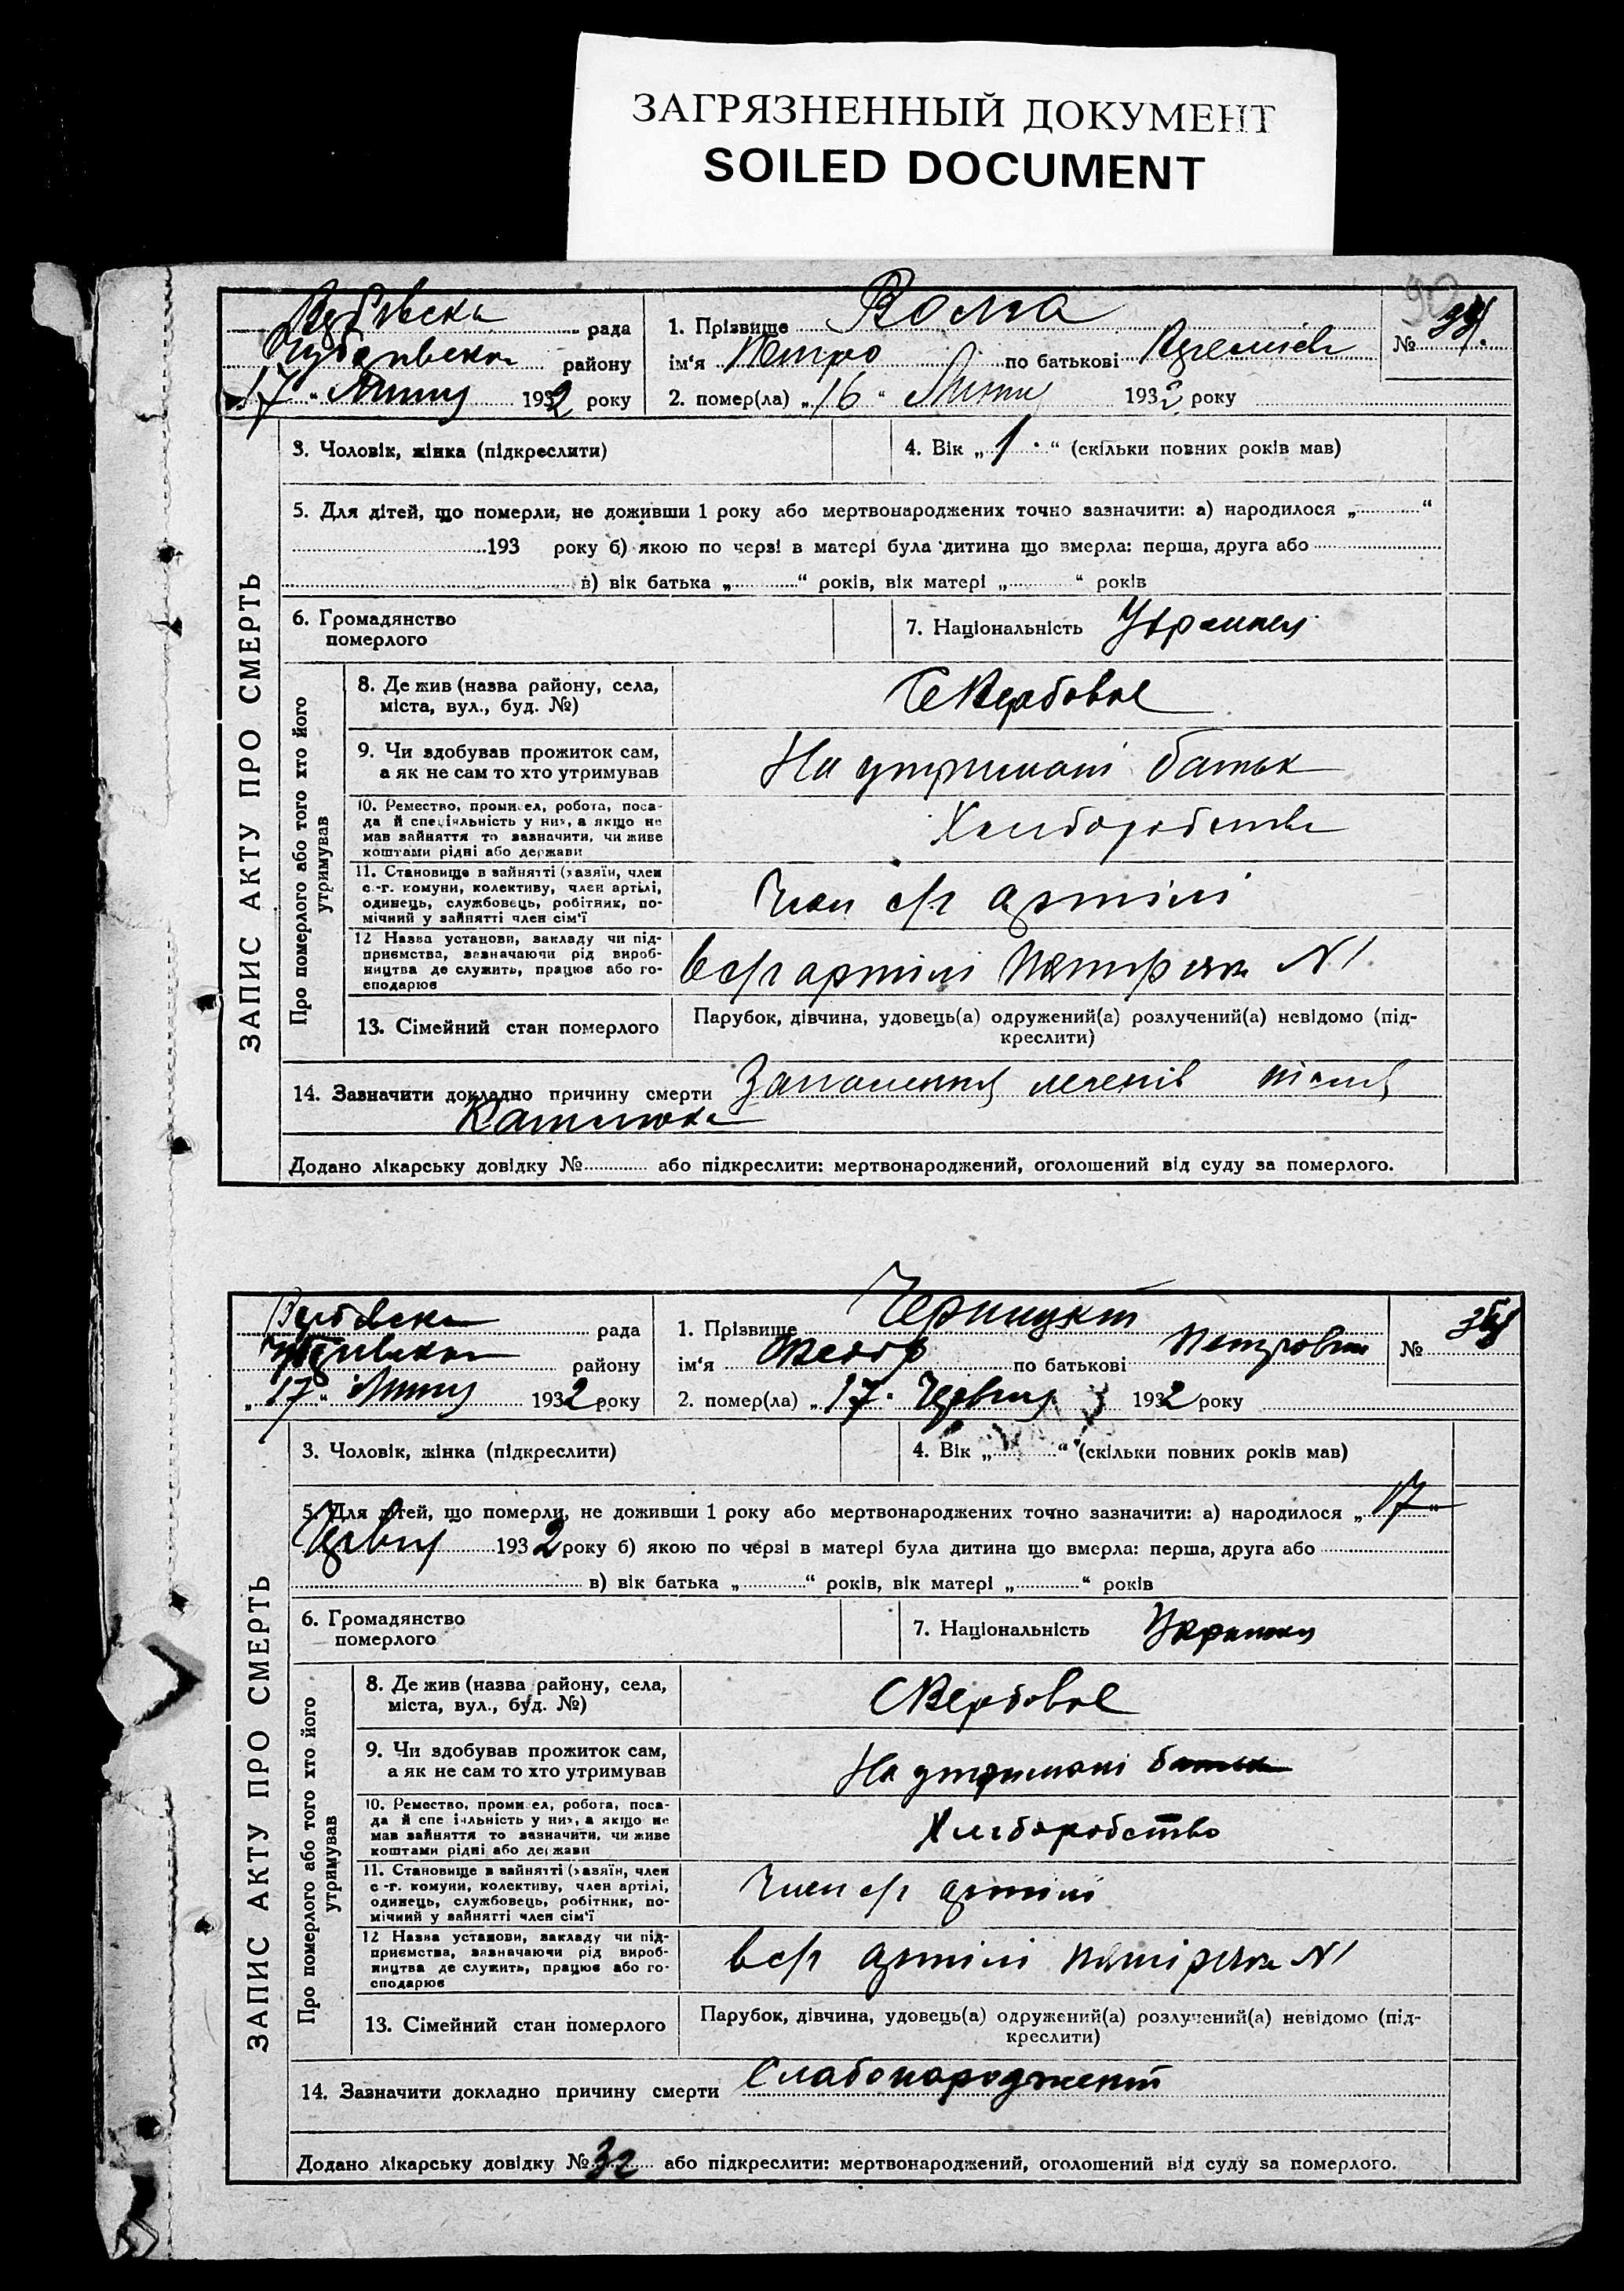 ЗАГРЯЗНЕННЫЙ ДОКУМЕНТ
SOILED DOCUMENT
90
ЗАПИС АКТУ ПРО СМЕРТЬ
рада
району
„17“ 1932 року
1. Прізвище
ім'я Петро по батькові
№
2. помер(ла) „16“ 1932 року
3. Чоловік, жінка (підкреслити)
4. Вік „1“ (скільки повних років мав)
5. Для дітей, що померли, не доживши 1 року або мертвонароджених точно зазначити: а) народилося „ “
193 року б) якою по черзі в матері була дитина що вмерла: перша, друга або
в) вік батька „ “ років, вік матері „ “ років
6. Громадянство
померлого
7. Національність
Про померлого або того хто його
утримував
8. Де жив (назва району, села,
міста, вул., буд. №)
С Вербовое
9. Чи здобував прожиток сам,
а як не сам то хто утримував
На утримані батьк
10. Ремество, промисел, робота, поса-
да й спеціяльність у них, а якщо не
мав зайняття то зазначити, чи живе
коштами рідні або держави
11. Становище в зайнятті (хазяїн, член
с.-г. комуни, колективу, член артілі,
одинець, службовець, робітник, по-
мічний у зайнятті член сім'ї
Член с/г артілі
12 Назва установи, закладу чи під-
приємства, зазначаючи рід вироб-
ництва де служить, працює або го-
сподарює
в с/г артілі N 1
13. Сімейний стан померлого
Парубок, дівчина, удовець(а) одружений(а) розлучений(а) невідомо (під-
креслити)
14. Зазначити докладно причину смерти Запалення легенів
Додано лікарську довідку № або підкреслити: мертвонароджений, оголошений від суду за померлого.
ЗАПИС АКТУ ПРО СМЕРТЬ
рада
району
„17“ 1932 року
1. Прізвище
ім'я по батькові Петрович
№
2. помер(ла) „17“ Червня 1932 року
3. Чоловік, жінка (підкреслити)
4. Вік „ “ (скільки повних років мав)
5. Для дітей, що померли, не доживши 1 року або мертвонароджених точно зазначити: а) народилося „17“
Червня 1932 року б) якою по черзі в матері була дитина що вмерла: перша, друга або
в) вік батька „ “ років, вік матері „ “ років
6. Громадянство
померлого
7. Національність
Про померлого або того хто його
утримував
8. Де жив (назва району, села,
міста, вул., буд. №)
С Вербовое
9. Чи здобував прожиток сам,
а як не сам то хто утримував
На утримані батька
10. Ремество, промисел, робота, поса-
да й спеціяльність у них, а якщо не
мав зайняття то зазначити, чи живе
коштами рідні або держави
Хліборобство
11. Становище в зайнятті (хазяїн, член
с.-г. комуни, колективу, член артілі,
одинець, службовець, робітник, по-
мічний у зайнятті член сім'ї
Член с/г артілі
12 Назва установи, закладу чи під-
приємства, зазначаючи рід вироб-
ництва де служить, працює або го-
сподарює
в с/г артілі N 1
13. Сімейний стан померлого
Парубок, дівчина, удовець(а) одружений(а) розлучений(а) невідомо (під-
креслити)
14. Зазначити докладно причину смерти
Додано лікарську довідку № 32 або підкреслити: мертвонароджений, оголошений від суду за померлого.